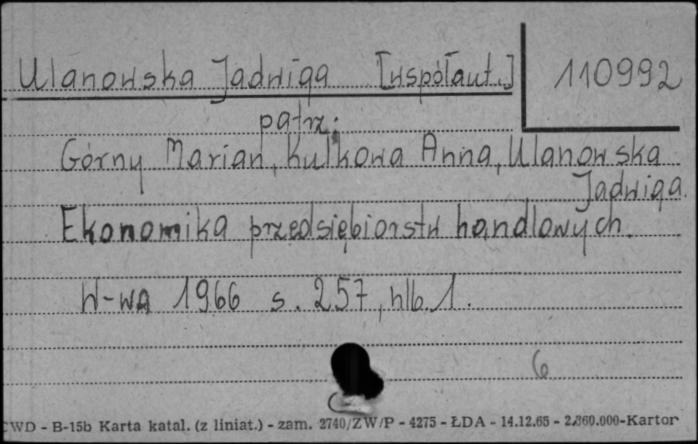 Ulanowska Jadwiga [współaut.] 110992
patrz:
Górny Marian, Kulkowa Anna, Ulanowska
Jadwiga.
Ekonomika przedsiębiorstw handlowych.
W-wa 1966 s. 257, nlb. 1.
6
CWD - B-15b Karta katal. (z liniat.) - zam. 2740/ZW/P - 4275 - ŁDA - 14.12.65 - 2.860.000-Karton